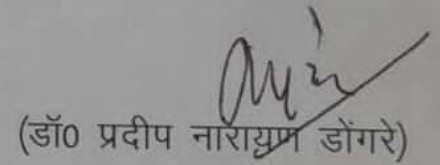 (डॉ0 प्रदीप नारायण डोंगरे)